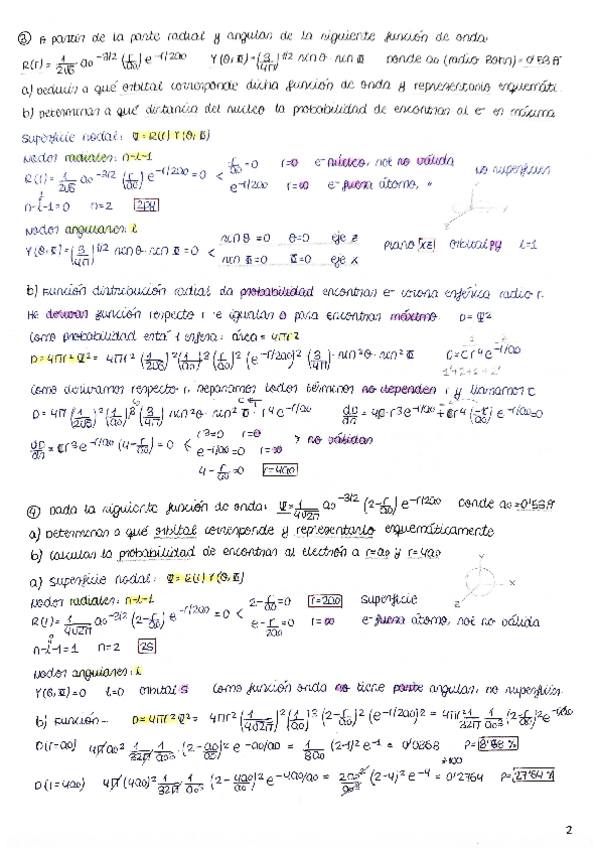 ③ A partir de la parte radial y angular de la siguiente función de onda:
R(r) = 1/2√6 a₀^-3/2 (r/a₀) e^-r/2a₀ Y(θ,Φ) = (3/4π)^1/2 senθ · senΦ donde a₀ (radio Bohr) = 0'53 Å
a) Deducir a qué orbital corresponde dicha función de onda y representarlo esquemáti.
b) Determinar a qué distancia del núcleo la probabilidad de encontrar al e⁻ en máxima
Superficie nodal: Ψ = R(r) Y(θ,Φ)
Nodos radiales: n-l-1
R(r) = 1/2√6 a₀^-3/2 (r/a₀) e^-r/2a₀ = 0 < r/a₀ = 0 r=0 e⁻ núcleo, no válida
e^-r/2a₀ r=∞ e⁻ fuera átomo, "
no superficies
n-l-1=0 n=2 2py
Nodos angulares: l
Y(θ,Φ) = (3/4π)^1/2 senθ · senΦ = 0 < senθ = 0 θ=0 eje z
senΦ=0 Φ=0 eje x
Plano xz orbital py l=1
b) Función distribución radial da probabilidad encontrar e⁻ corona esférica radio r.
He derivar función respecto r e igualar a 0 para encontrar máximo. D = Ψ²
Como probabilidad está en esfera: área = 4πr²
D = 4πr²Ψ² = 4πr² (1/2√6)² (1/a₀)³ (r/a₀)² (e^-r/2a₀)² (3/4π) · sen²θ · sen²Φ D = Cr⁴e^-r/a₀
Como derivamos respecto r, separamos todos términos no dependen r y llamamos C
D = 4π (1/2√6)² (1/a₀)⁵ (3/4π) sen²θ · sen²Φ · r⁴ e^-r/a₀ dD/dr = 4C·r³e^-r/a₀ + Cr⁴(-r/a₀) e^-r/a₀ = 0
dD/dr = Cr³e^-r/a₀ (4 - r/a₀) = 0 < r³=0 r=0
e^-r/a₀ = 0 r=∞ > no válidas
4 - r/a₀ = 0 r=4a₀
④ Dada la siguiente función de onda: Ψ = 1/4√2π a₀^-3/2 (2-r/a₀) e^-r/2a₀ donde a₀=0'53 Å
a) Determinar a qué orbital corresponde y representarlo esquemáticamente
b) Calcular la probabilidad de encontrar al electrón a r=a₀ y r=4a₀
a) Superficie nodal: Ψ = R(r) Y(θ,Φ)
x
z
Nodos radiales: n-l-1
R(r) = 1/4√2π a₀^-3/2 (2-r/a₀) e^-r/2a₀ = 0 < 2-r/a₀=0 r=2a₀ superficie
e^-r/2a₀=0 r=∞ e⁻ fuera átomo, no válida
n-l-1=1 n=2 2s
Nodos angulares: l
Y(θ,Φ)=0 l=0 orbital s Como función onda no tiene parte angular, no superficies.
b) Función → D = 4πr²Ψ² = 4πr² (1/4√2π)² (1/a₀)³ (2-r/a₀)² (e^-r/2a₀)² = 4πr² 1/32π 1/a₀³ (2-r/a₀)² e^-r/a₀
D(r=a₀) 4πa₀² 1/32π 1/a₀³ · (2-a₀/a₀)² e^-a₀/a₀ = 1/8a₀ (2-1)² e⁻¹ = 0'0868 P = 8'68 %
·100
D(r=4a₀) 4π(4a₀)² 1/32π 1/a₀³ (2-4a₀/a₀)² e^-4a₀/a₀ = 2a₀²/a₀³ (2-4)² e⁻⁴ = 0'2764 P = 27'64 %
2